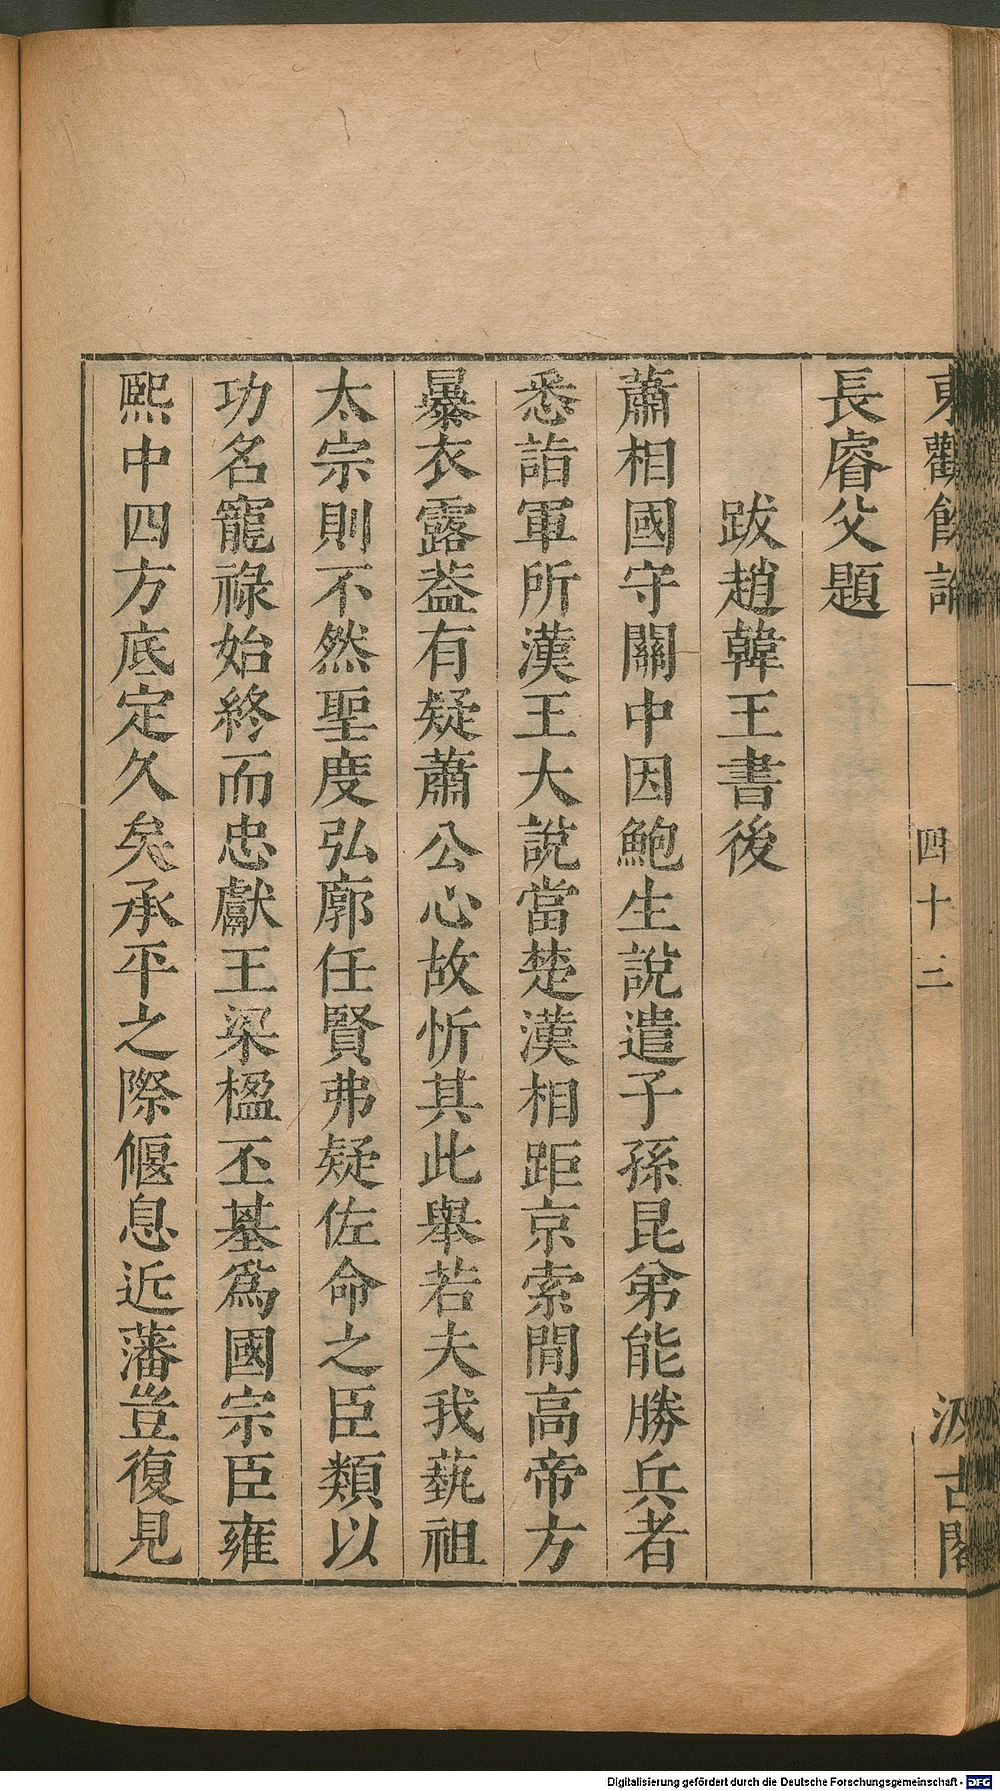 東觀餘論
四十三
汲古閣
長睿父題
跋趙韓王書後
蕭相國守關中因鮑生說遣子孫昆弟能勝兵者
悉詣軍所漢王大說當楚漢相距京索間高帝方
暴衣露葢有疑蕭公心故忻其此舉若夫我藝祖
太宗則不然聖度弘廓任賢弗疑佐命之臣類以
功名寵祿始終而忠獻王梁楹丕基爲國宗臣雍
熙中四方底定久矣承平之際偃息近藩豈復見
Digitalisierung gefördert durch die Deutsche Forschungsgemeinschaft - DFG